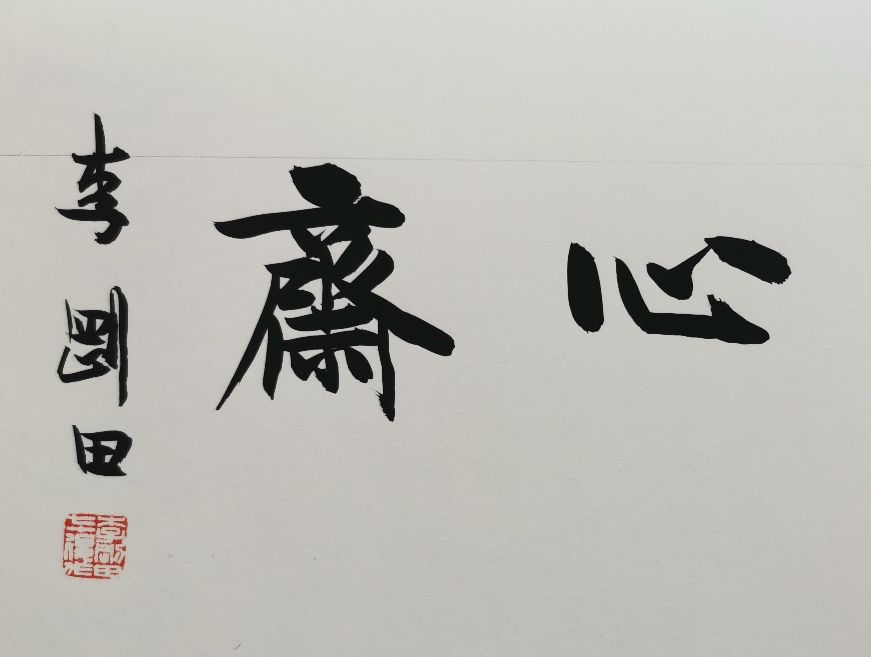 心齋
李剛田